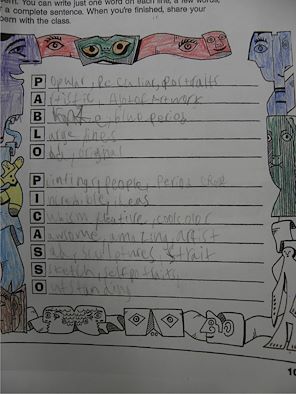 oem. You can write just one word on each line, a few words,
a complete sentence. When you're finished, share your
oem with the class.
Popular, Peculiar, Portraits
Artistic, A lot of Artwork
B blue period
Large lines
Odd, original
Paintings, people, Period
Incredible, ideas
Cubism, creative, cool color
Awsome, amazing, artist
Sad, sculptures,
Sketch, self portraits
Outstanding
10